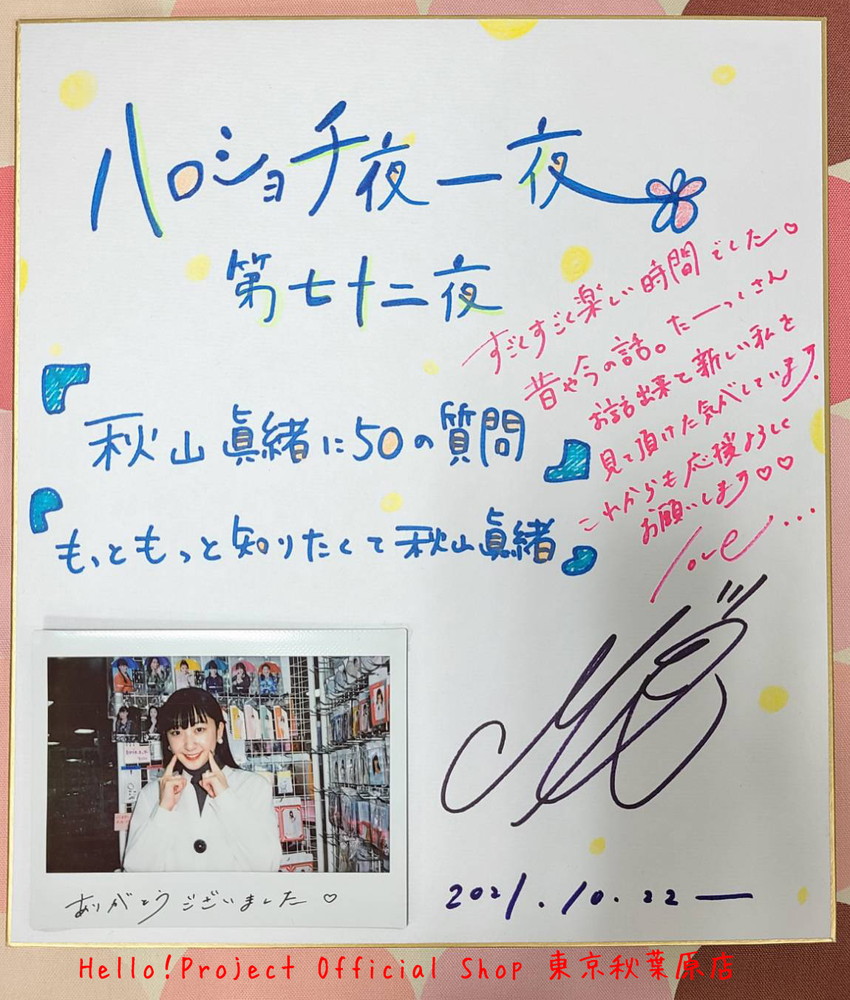 ハロショ千夜一夜
第七十二夜
「秋山眞緒に50の質問」
「もっともっと知りたくて秋山眞緒」
すごくすごく楽しい時間でした♡
昔や今の話。たーっくさん
お話出来て新しい私を
見て頂けた気がしています。
これからも応援よろしく
お願いします♡♡
love...
ありがとうございました♡
2021.10.22
Hello!Project Official Shop 東京秋葉原店